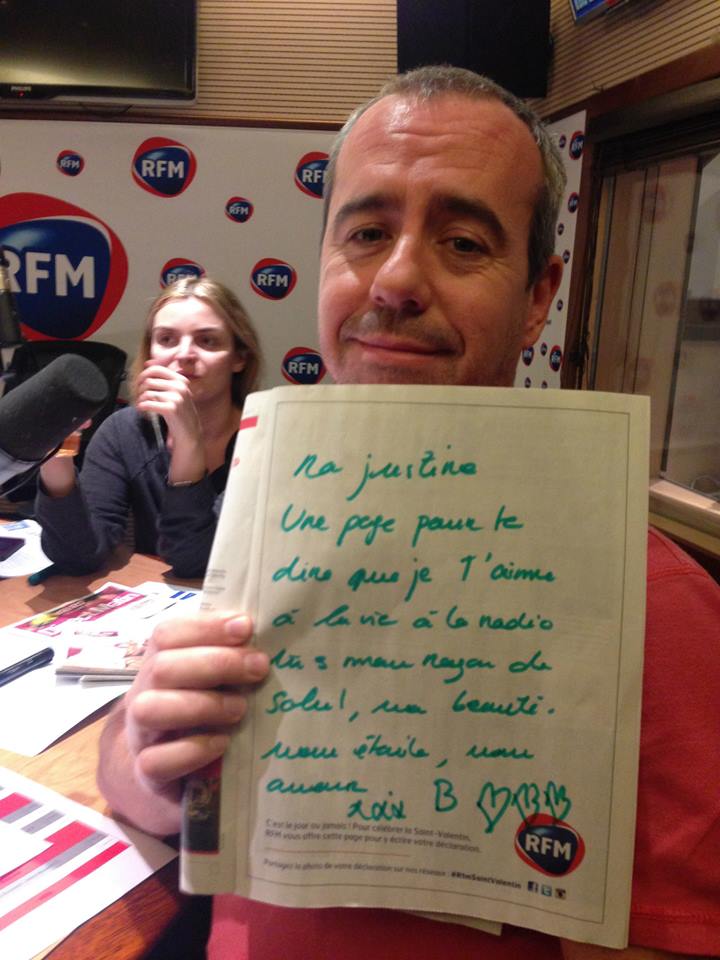 PHILIPS
RFM
RFM
RFM
RFM
RFM
RFM
RFM
RFM
Ma justine
Une page pour te
dire que je T'aime
à la vie à la radio
tu s mon rayon de
soleil, ma beauté.
mon étoile, mon
amour
B
C'est le jour ou jamais ! Pour célébrer la Saint-Valentin,
RFM vous offre cette page pour y écrire votre déclaration.
Partagez la photo de votre déclaration sur nos réseaux : #RfmSaintValentin
RFM